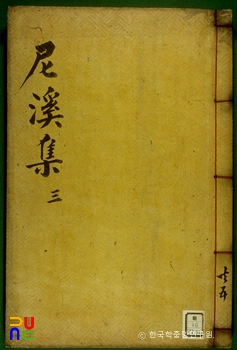 尼溪集
三
共五
© 한국학중앙연구원